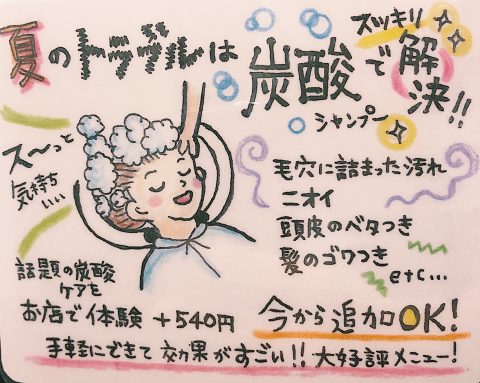 夏のトラブルは
炭酸で
シャンプー
スッキリ
解決!!
ス〜っと
気持ち
いい
毛穴に詰まった汚れ
ニオイ
頭皮のベタつき
髪のゴワつき
etc...
話題の炭酸
ケアを
お店で体験 +540円
今から追加OK!
手軽にできて効果がすごい!!大好評メニュー!